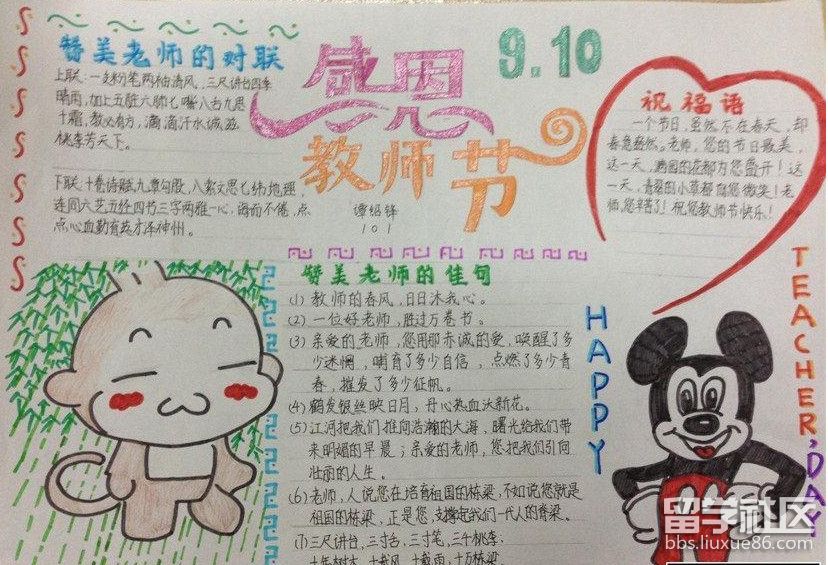 感恩
教师节
9.10
谭绍锋
101
赞美老师的对联
上联:一支粉笔两袖清风,三尺讲台四季
晴雨,加上五脏六腑七嘴八舌九思
十霜,教必有方,滴滴汗水诚滋
桃李芳天下。
下联:十卷诗赋九章勾股,八索文思七纬地理,
连同六艺五经四书三字两雅一心,诲而不倦,点
点心血勤育英才泽神州。
祝福语
一个节日,虽然不在春天,却
春意盎然。老师,您的节日最美,
这一天,满园的花都为您盛开!这
一天,青翠的小草都向您微笑!老
师,您辛苦了!祝您教师节快乐!
赞美老师的佳句
(1) 教师的春风,日日沐我心。
(2) 一位好老师,胜过万卷书。
(3) 亲爱的老师,您用那赤诚的爱,唤醒了多
少迷惘,哺育了多少自信,点燃了多少青
春,摧发了多少征帆。
(4) 鹤发银丝映日月,丹心热血沃新花。
(5) 江河把我们推向浩瀚的大海,曙光给我们带
来明媚的早晨;亲爱的老师,您把我们引向
壮丽的人生。
(6) 老师,人说您在培育祖国的栋梁,不如说您就是
祖国的栋梁,正是您,支撑定我们一代人的脊梁。
(7) 三尺讲台,三寸舌,三寸笔,三千桃李;
十年树木,十载风,十载雨,十万栋梁
HAPPY
TEACHER'DAY
留学社区
bbs.liuxue86.com